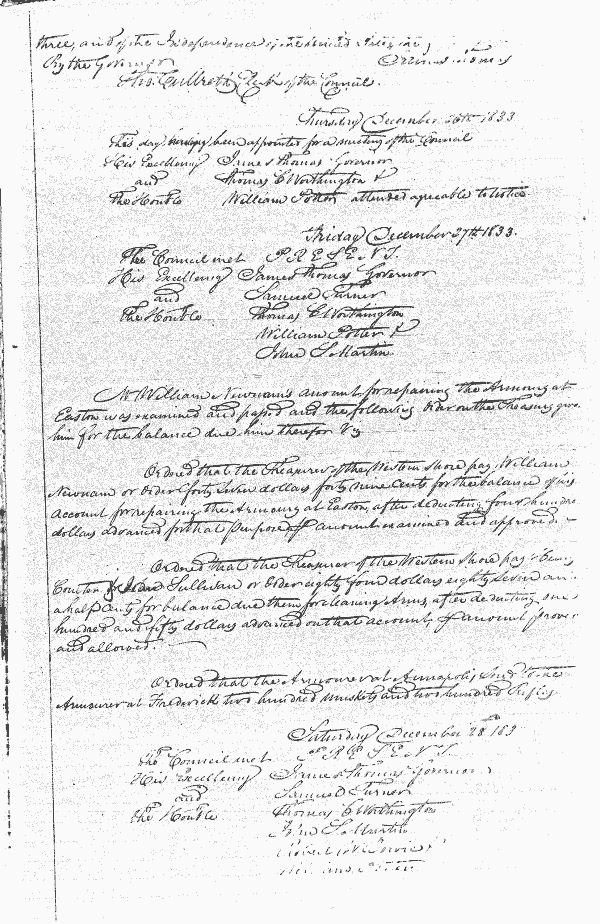 three, and of the Independence of the United States
By the Governor
Thos. Culbreth Clerk of the Council.
Thursday December 26th 1833
This day having been appointed for a meeting of the Council
His Excellency James Thomas Governor
and Thomas C Worthington &
the Honble William Potter attended agreeable to notice
Friday December 27th 1833.
The Council met PRESENT.
His Excellency James Thomas Governor
and Samuel Turner
the Honble Thomas C Worthington
William Potter &
John S Martin
Mr William Newnam's account for repairing the Armoury at
Easton was examined and passed and the following Order on the Treasury given
him for the balance due him therefor Viz
Ordered that the Treasurer of the Western Shore pay William
Newnam or order forty seven dollars forty nine Cents for the balance of his
account for repairing the Armoury at Easton, after deducting four hundred
dollars advanced for that purpose account examined and approved.
Ordered that the Treasurer of the Western Shore pay
& John Sullivan or order eighty four dollars eighty seven and
a half Cents for balance due them for cleaning Arms, after deducting one
hundred and fifty dollars advanced on that account, account
and allowed.
Ordered that the Armourer at Annapolis send to the
Armourer at Frederick two hundred muskets and two hundred
Saturday December 28 183
The Council met PRESENT.
His Excellency James Thomas Governor
and Samuel Turner
the Honble Thomas C Worthington
John S Martin